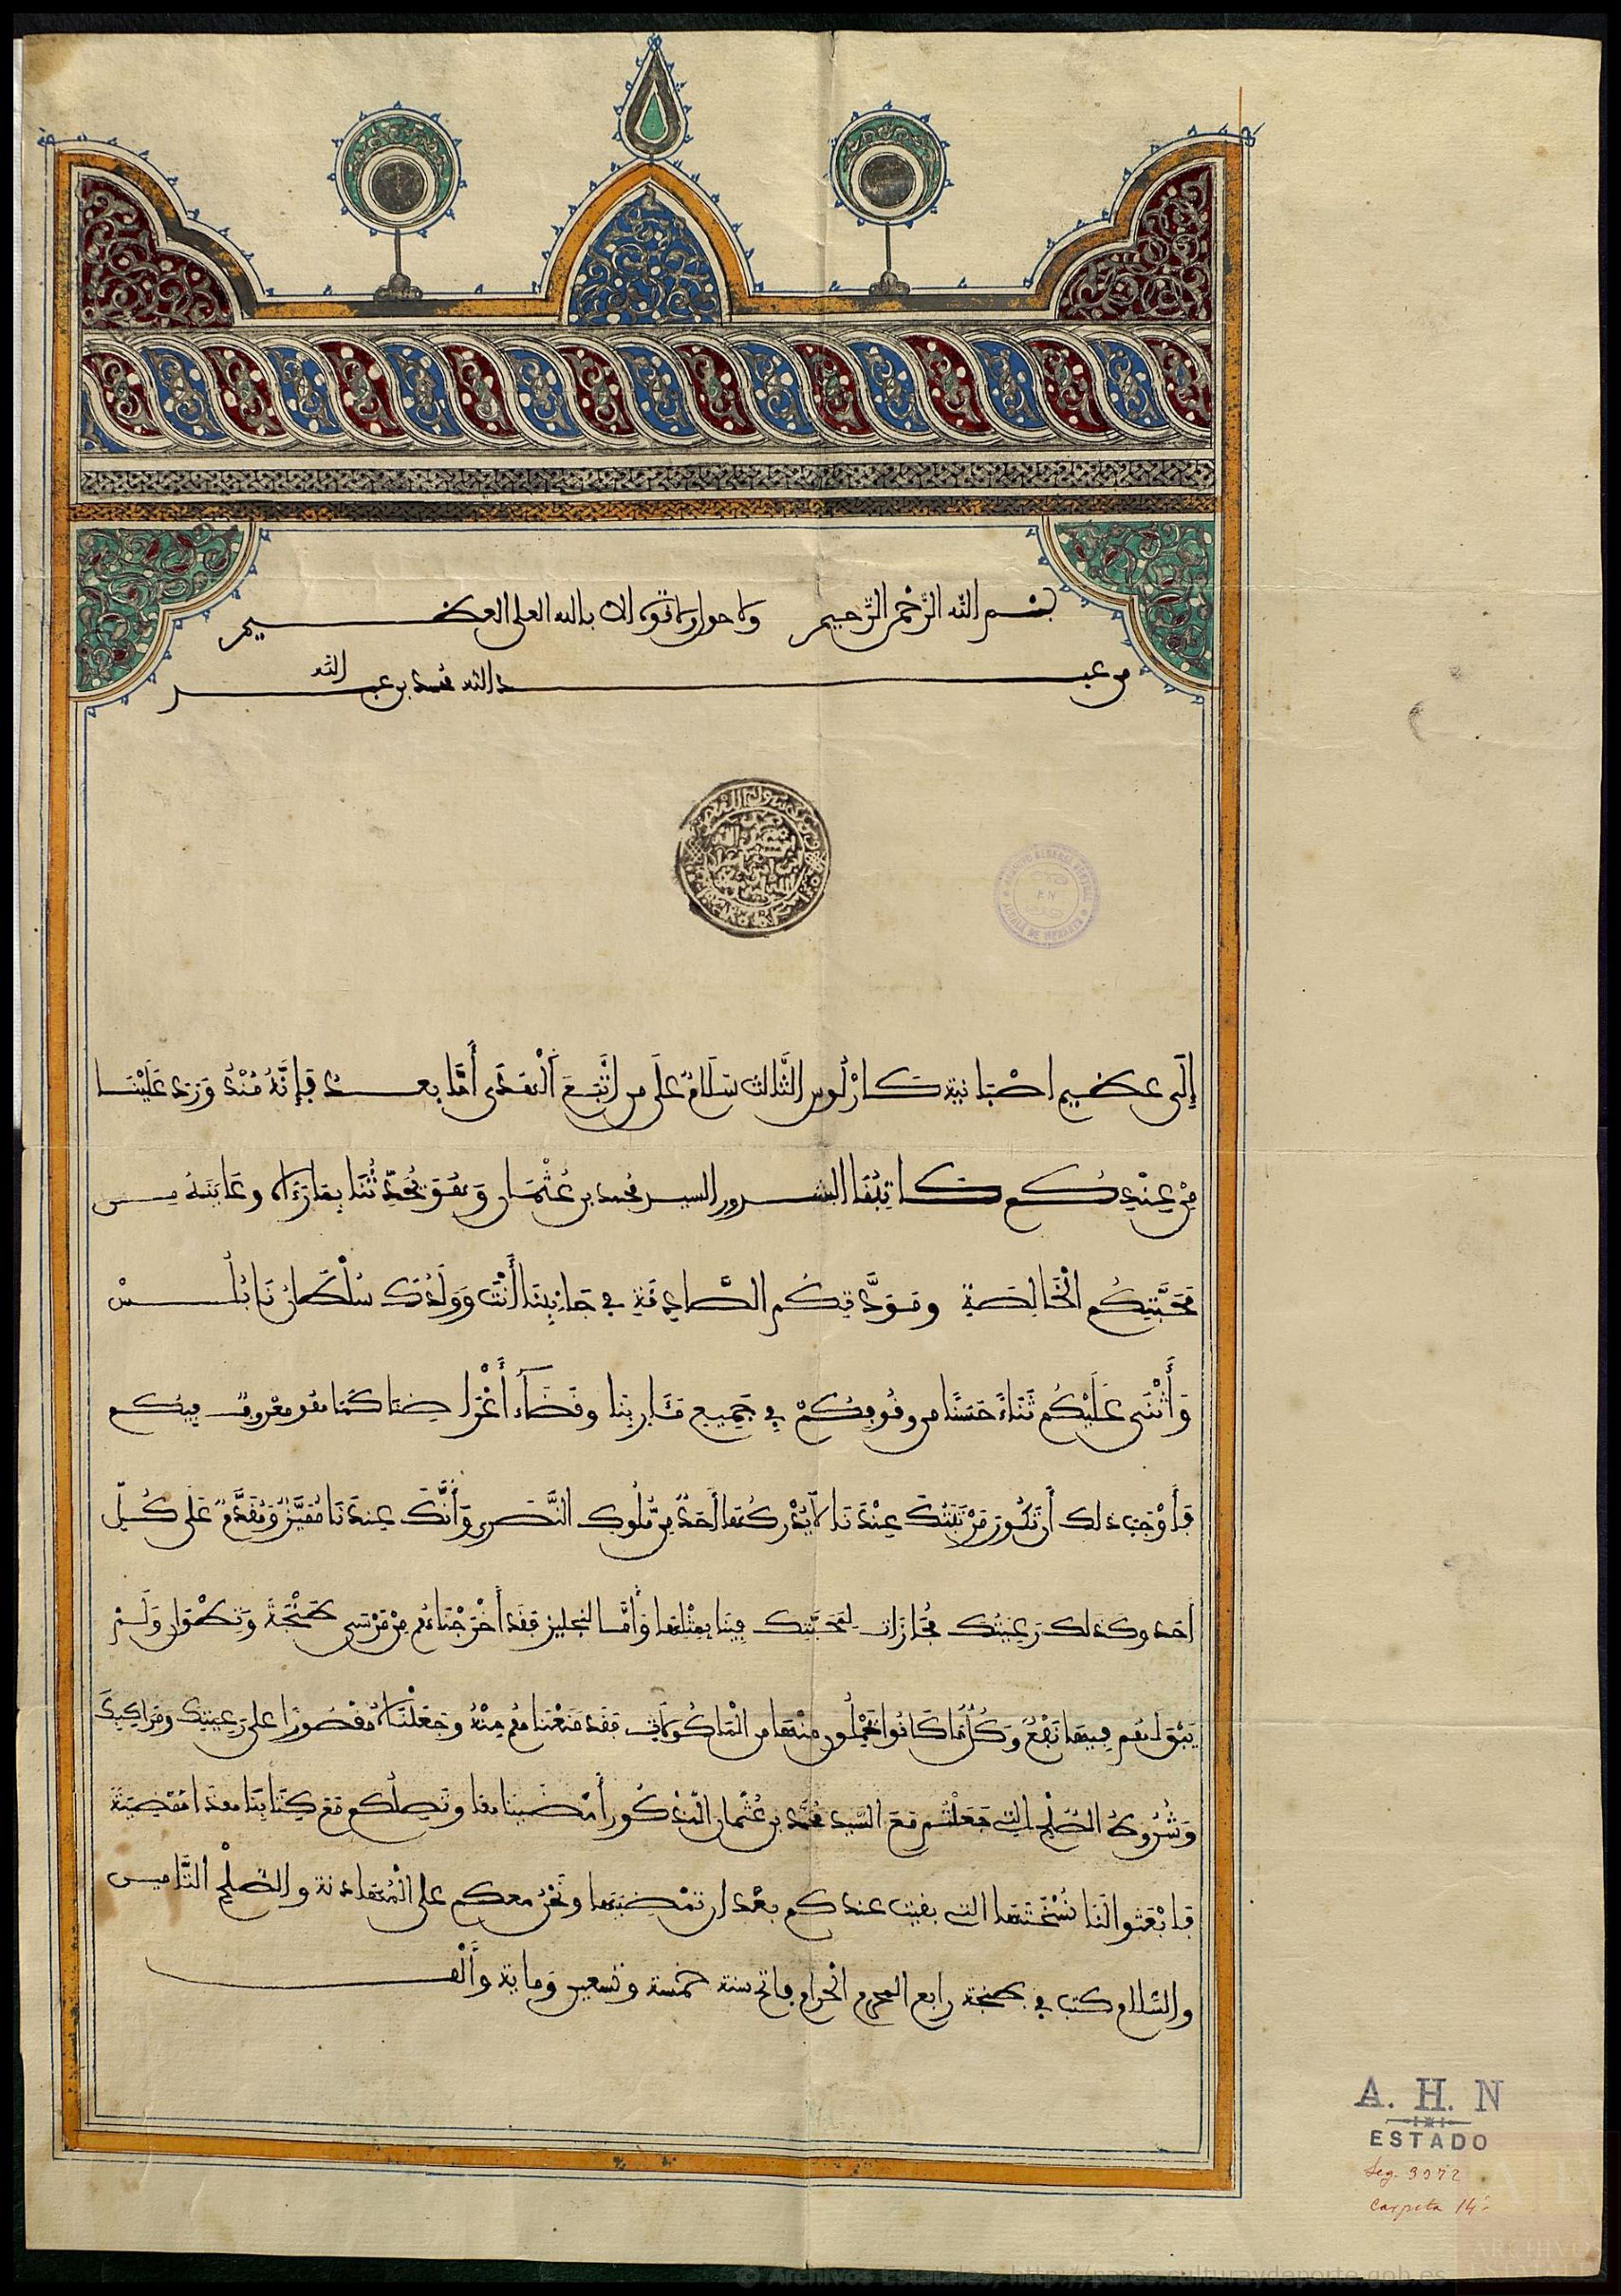 بسم الله الرحمن الرحيم ولا حول ولا قوة الا بالله العلي العظيم
من عبد الله محمد بن عبد الله
إِلَى عظيم اصْبَانية كَارْلُوس الثَّالث سَلَامٌ عَلَى من اتَّبَعَ الْهُدَى أَمَّا بعد فَإِنَّهُ مُنْذُ وَرَدَ عَلَيْنَا
مِنْ عِنْدِكُم كَاتِبُنَا السيد محمد بن عُثْمَان وَهُوَ يُحَدِّثُنَا بِمَا رَءَاهُ وعَايَنَهُ من
مَحَبَّتِكُم الْخَالِصَةِ ومَوَدَّتِكُم الصَّادِقَةِ في جَانِبِنَا أَنْتَ وَوَلَدُكَ سُلْطَانُ نَابُلس
وَأَثْنَى عَلَيْكُم ثَنَاءً حَسَنًا من وقُوفِكُمْ فِي جَمِيعِ مَـَٔارِبِنَا وقَضَاءِ أَغْرَاضِنَا كَمَا هُو معْروفٌ فِيكم
فَأَوْجَبَ ذلك أَن تكُونَ مَرْتَبَتُكَ عِنْدَنَا لَا يُدْرِكُهَا أَحَدٌ مِن مُّلُوكِ النَّصَرى وَأَنَّكَ عِندَنَا مُمَيَّزٌ وَمُقَدَّمٌ عَلَى كُلِّ
أَحَد وكذلك رَعِيَتُكَ مُجَازَات لِمَحَبَّتِك فِينَا بِمِثْلِهَا وَأَمَّا النجليز فَقَد أَخْرَجْنَاهُم مِنْ مَرْسَى طَنْجَةَ وَتطْوَان وَلَمْ
يَبْقَ لَهُم فِيهَا نَفْعٌ وَكُلُّ مَا كَانُوا يَحْمِلُون مِنْهَا من الْمَاكُولَاتِ فَقَد مَنَعْنَاهُم مِنْهُ وجَعَلْنَاهُ مَقْصُورًا عَلَى رَعِيتِكَ ومَرَاكِبِكَ
وَشُرُوطُ الصُّلْحِ الَّتي جَعَلْتُم مَعَ السَّيد مُحَمَّد بن عُثْمان الْمَذْكُور أَمْضَيْنَاهَا وتَصِلُكم مَعَ كِتَابِنَا هَذا مُمْضِيَة
فابْعَثوا لَنَا نُسْخَتَهَا التي بقيت عندكم بعْدَ ان تمْضِيَهَا ونَحْنُ معكم على الْمُهَادنة والصُّلْحِ التَّام
والسَّلام وكتب في طنجة رابع المحرم الْحرام فاتح سنة خمسة وتسعين وماية وأَلْف
A. H. N
ESTADO
Leg. 3372
Carpeta 14
© Archivos Estatales, http://pares.culturaydeporte.gob.es